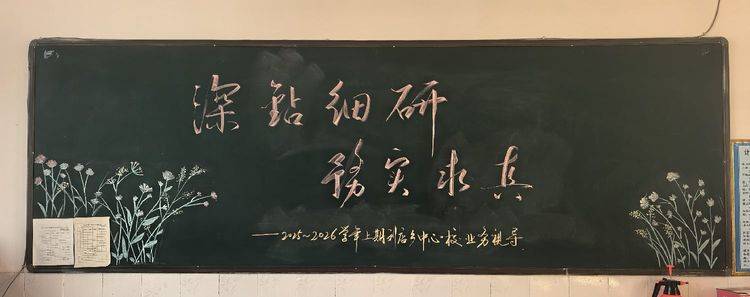 深鉆细研
務实求真
——2025~2026学年上期刘店乡中心校业务视导
计